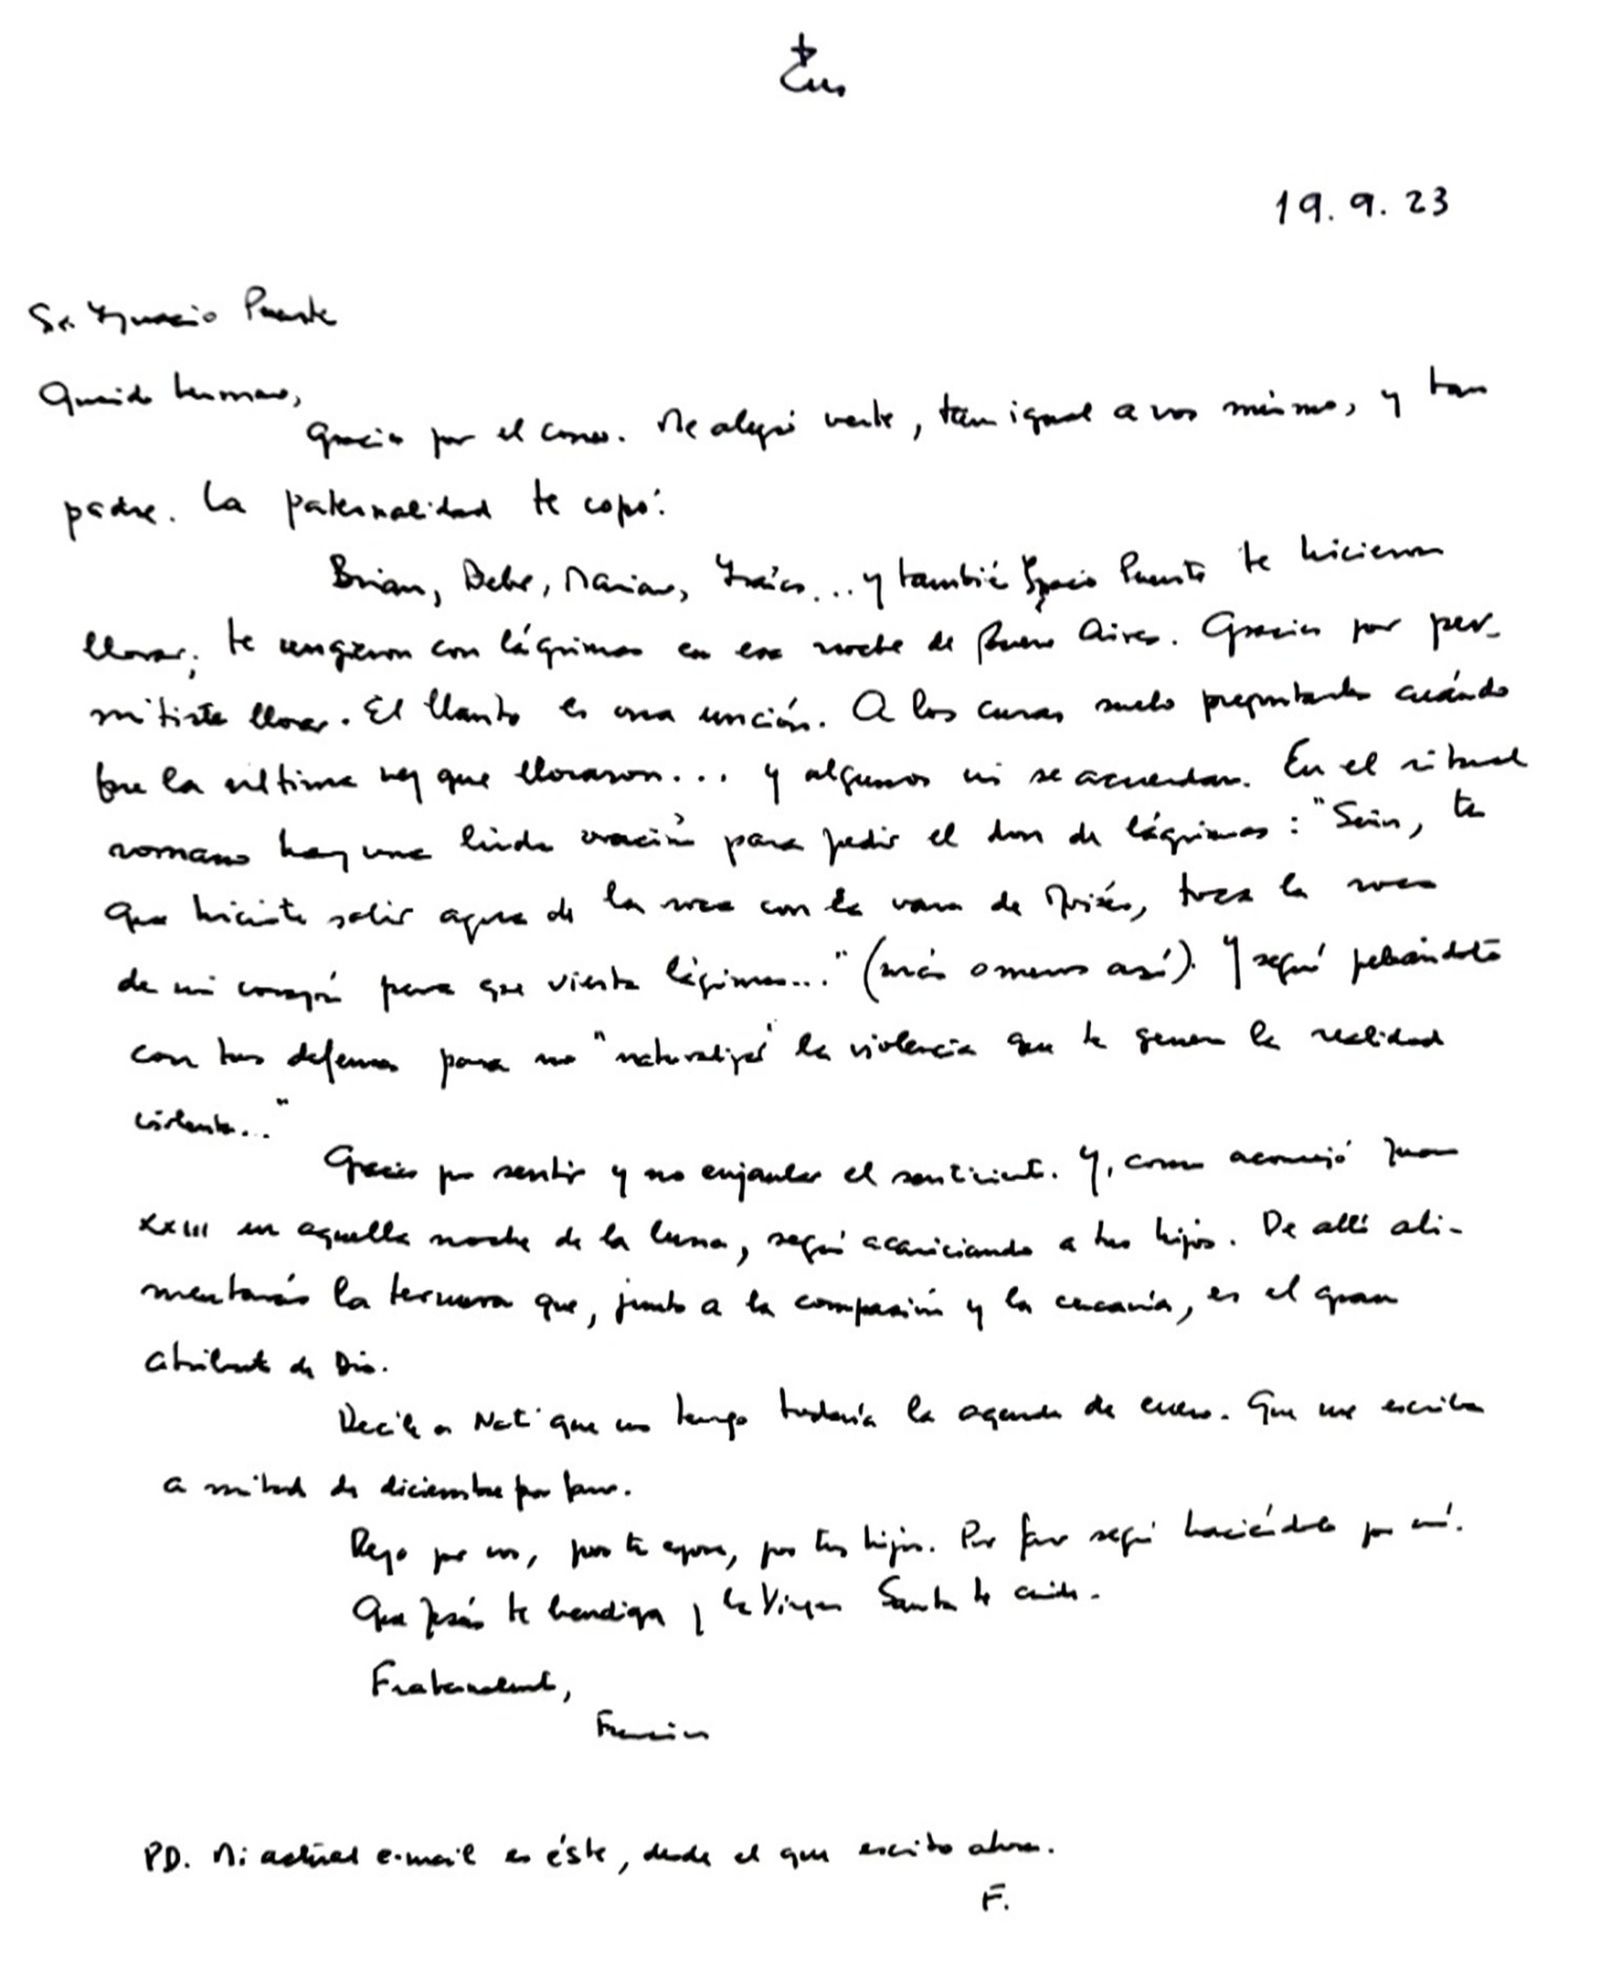 19.9.23
Sr. Ygnacio Puente
Querido hermano,
Gracias por el correo. Me alegró verte, tan igual a vos mismo, y tan
padre. La paternalidad te copó.
Brian, Debe, Mariano, ... y también Ygnacio Puente te hicieron
llorar; te ungieron con lágrimas en esa noche de Buenos Aires. Gracias por per-
mitirte llorar. El llanto es una unción. A los curas suelo preguntarles cuándo
fue la última vez que lloraron... y algunos ni se acuerdan. En el ritual
romano hay una linda oración para pedir el don de lágrimas: "Señor, tú
que hiciste salir agua de la roca con la vara de Moisés, toca la roca
de mi corazón para que vierta lágrimas..." (más o menos así). Y seguí peleándote
con tus defensas para no "naturalizar" la violencia que te genera la realidad
violenta..."
Gracias por sentir y no enjaular el sentimiento. Y, como aconsejó Juan
XXIII en aquella noche de la luna, seguí acariciando a tus hijos. De allí ali-
mentarás la ternura que, junto a la compasión y la cercanía, es el gran
atributo de Dios.
Decile a Nati que no tengo todavía la agenda de enero. Que me escriba
a mitad de diciembre por favor.
Rezo por vos, por tu esposa, por tus hijos. Por favor seguí haciéndolo por mí.
Que Jesús te bendiga y la Virgen Santa te cuide.
Fraternalmente,
Francisco
PD. Mi actual e-mail es éste, desde el que escribo ahora.
F.